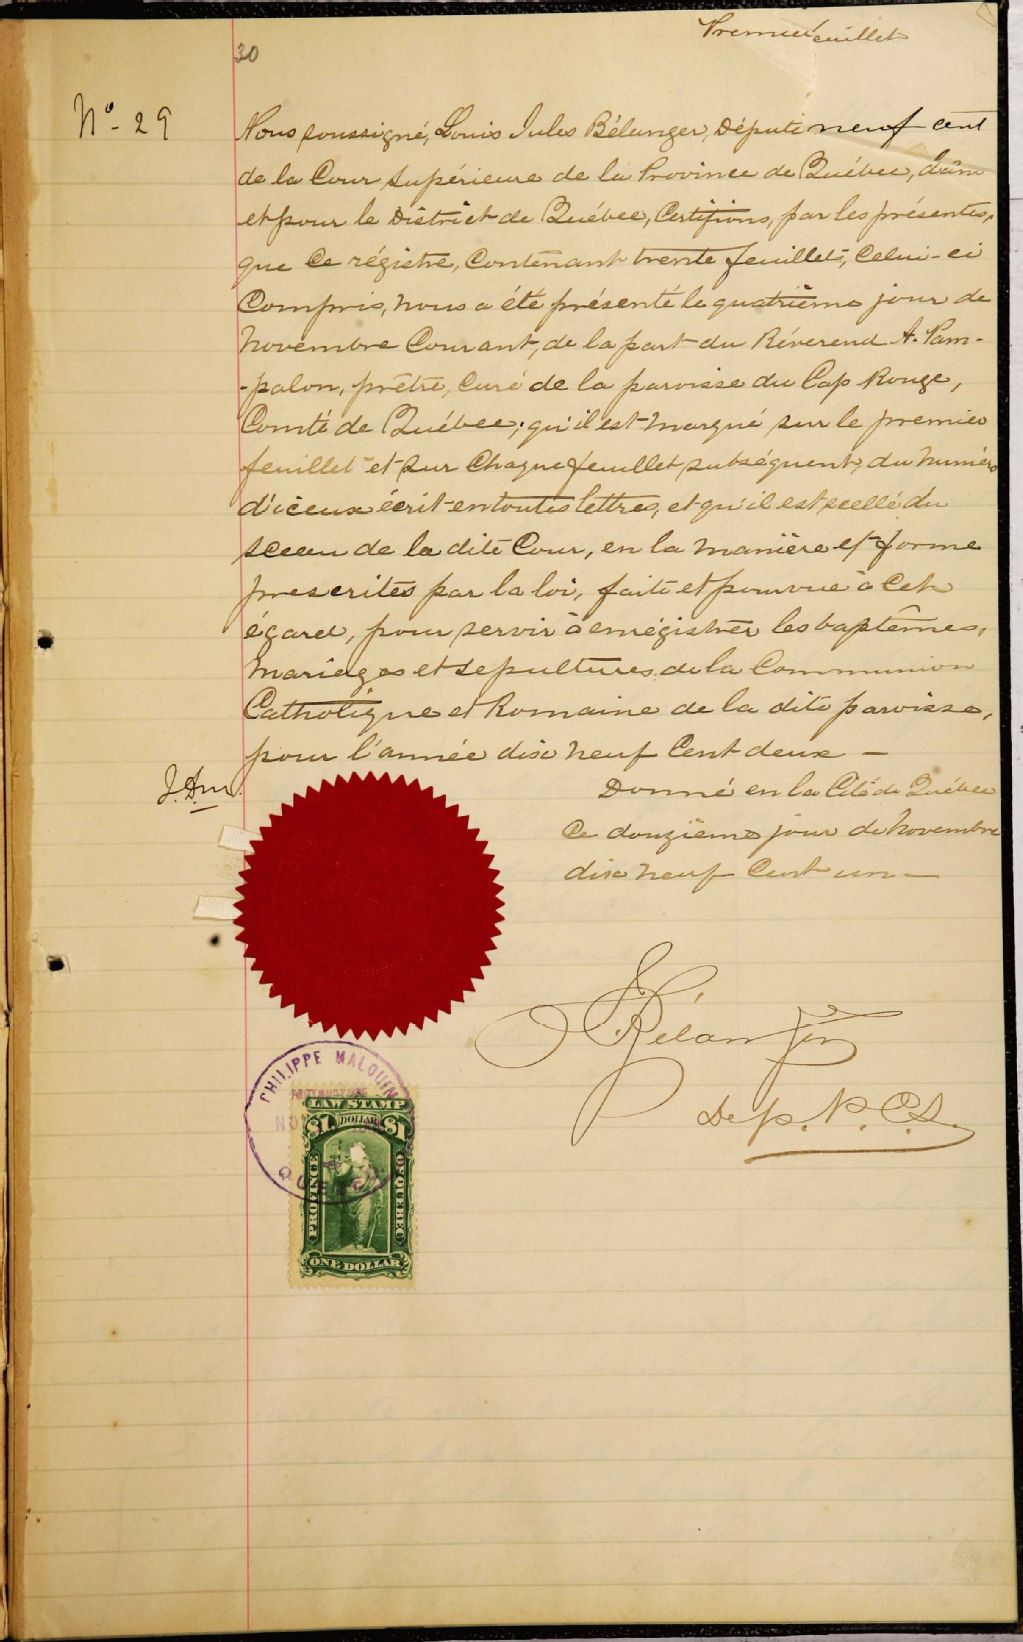 Premier feuillet
30
No - 29
Nous soussigné, Louis Jules Bélanger, Député neuf cent
de la Cour Supérieure de la Province de Québec, dans
et pour le District de Québec, Certifions, par les présentes,
que Ce régistre, Contenant trente feuillets, Celui-ci
Compris, nous a été présenté le quatrième jour de
Novembre Courant, de la part du Révérend A. Pam-
-palon, prêtre, Curé de la paroisse du Cap Rouge,
Comté de Québec; qu'il est marqué sur le premier
feuillet et sur Chaque feuillet subséquent, du numéro
d'iceux écrit en toutes lettres, et qu'il est scellé du
sceau de la dite Cour, en la manière et forme
prescrites par la loi, faite et pourvue à Cet
égard, pour servir à enregistrer les baptêmes,
mariages et sépultures de la Communion
Catholique et Romaine de la dite paroisse,
pour l'année dix neuf Cent deux —
Donné en la Cité de Québec
Ce douzième jour de Novembre
dix neuf Cent un —
Bélanger
Dep. P. C. S.
PHILIPPE MALOUIN
NOV
QUEBEC
LAW STAMP
$1 DOLLAR $1
PROVINCE
OF QUEBEC
ONE DOLLAR